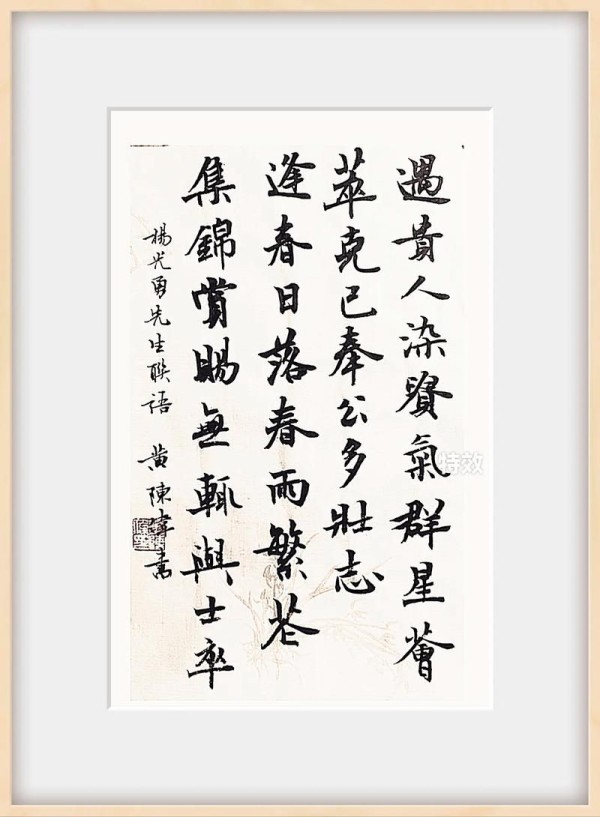 遇貴人染賢氣群星薈
萃克己奉公多壯志
逢春日落春雨繁花
集錦賞賜無輒與士卒
楊光勇先生聯語 黄陳書
特效